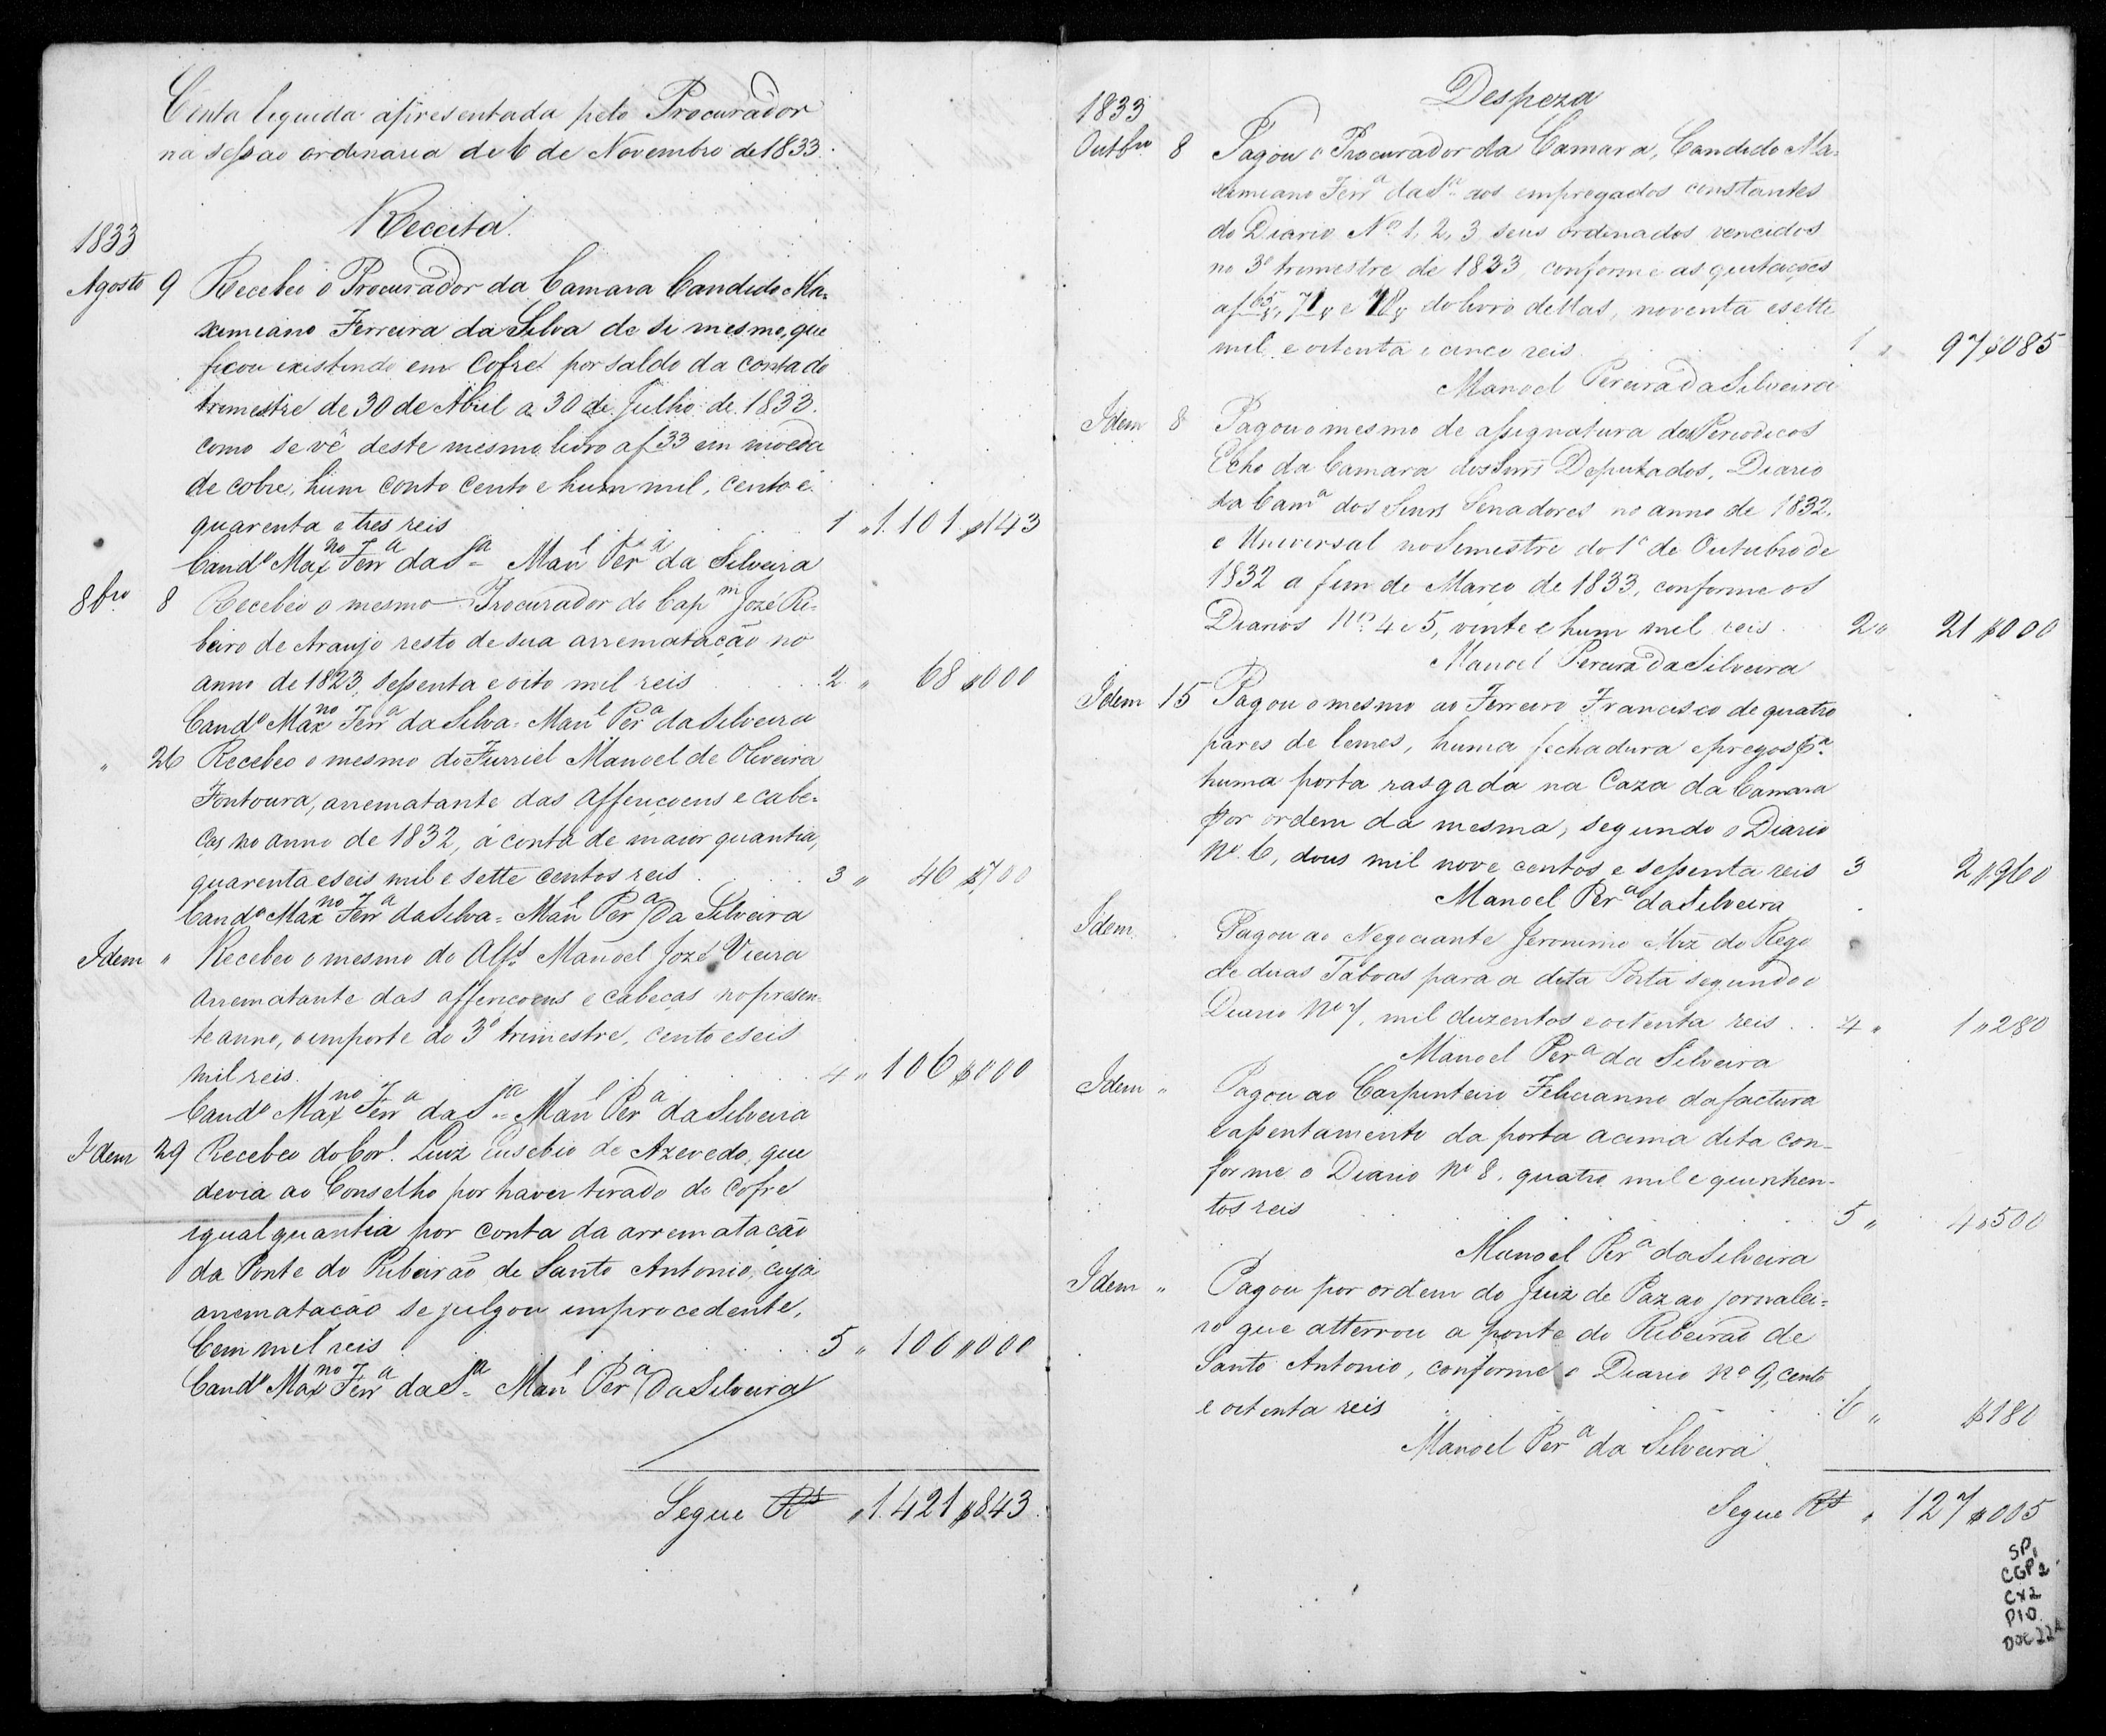 Conta liquida apresentada pelo Procurador
na sessão ordinaria de 6 de Novembro de 1833.
Receita
1833
Agosto 9 Recebeo o Procurador da Camara Candido Ma-
ximiano Ferreira da Silva de si mesmo, que
ficou existindo em Cofre por saldo da conta do
trimestre de 30 de Abril a 30 de Julho de 1833.
como se vê deste mesmo livro a f 33 em moeda
de cobre, hum conto cento e hum mil, cento e
quarenta e tres reis 1 " 1.101$143
Candº Maxno Ferra da Sa = Manl Pera da Silveira
8bro 8 Recebeo o mesmo Procurador do Capm José Ri-
beiro de Araujo resto de sua arrematação no
anno de 1823, sessenta e oito mil reis 2 " 68$000
Candº Maxno Ferra da Silva = Manl Pera da Silveira
" 26 Recebeo o mesmo do Furriel Manoel de Oliveira
Fontoura, arrematante das afferiçoens e cabe-
ças no anno de 1832, á conta de maior quantia,
quarenta e seis mil e sette centos reis 3 " 46$700
Candº Maxno Ferra da Silva = Manl Pera da Silveira
Idem " Recebeo o mesmo do Alfs Manoel José Vieira
arrematante das afferiçoens e cabeças no presen-
te anno, o importe do 3º trimestre, cento e seis
mil reis. 4 " 106$000
Candº Maxno Ferra da Sa = Manl Pera da Silveira
Idem 29 Recebeo do Corl. Luiz Eusebio de Azevedo, que
devia ao Conselho por haver tirado do Cofre
igual quantia por conta da arrematação
da Ponte do Ribeirão de Santo Antonio, cuja
arrematação se julgou improcedente,
Cem mil reis 5 " 100$000
Candº Maxno Ferra da Sa = Manl Pera da Silveira
Segue Rs " 1.421$843
Despeza
1833
Outbro 8 Pagou o Procurador da Camara, Candido Ma-
ximiano Ferra da Sa aos empregados constantes
do Diario Nº 1, 2, 3 seus ordenados vencidos
no 3º trimestre de 1833, conforme as quitaçoes
a f 65v, 71v e 78v do livro dellas, noventa e sette
mil e oitenta e cinco reis 1 " 97$085
Manoel Pereira da Silveira
Idem 8 Pagou o mesmo de assignatura dos Periodicos
Echo da Camara dos Snrs Deputados, Diario
da Cama dos Snrs Senadores no anno de 1832.
e Universal no Semestre do 1º de Outubro de
1832 a fim de Março de 1833, conforme os
Diarios Nº 4 e 5, vinte e hum mil reis 2 " 21$000
Manoel Pereira da Silveira
Idem 15 Pagou o mesmo ao Ferreiro Francisco de quatro
pares de lemes, huma fechadura e pregos pa
huma porta rasgada na Caza da Camara
por ordem da mesma, segundo o Diario
Nº 6, dous mil nove centos e sessenta reis 3 2$960
Manoel Pera da Silveira
Idem Pagou ao Negociante Jeronimo Miz do Rego
de duas Taboas para a dita Porta segundo o
Diario Nº 7, mil duzentos e oitenta reis 4 " 1"280
Manoel Pera da Silveira
Idem " Pagou ao Carpinteiro Felicianno da factura
e assentamento da porta acima dita con-
forme o Diario Nº 8, quatro mil e quinhen-
tos reis 5 " 4$500
Manoel Pera da Silveira
Idem " Pagou por ordem do Juiz de Paz ao jornalei-
ro que atterrou a ponte do Ribeirão de
Santo Antonio, conforme o Diario Nº 9, cento
e oitenta reis 6 " $180
Manoel Pera da Silveira
Segue Rs " 127$005
SP1
CGP2
CX2
P10
DOC22A